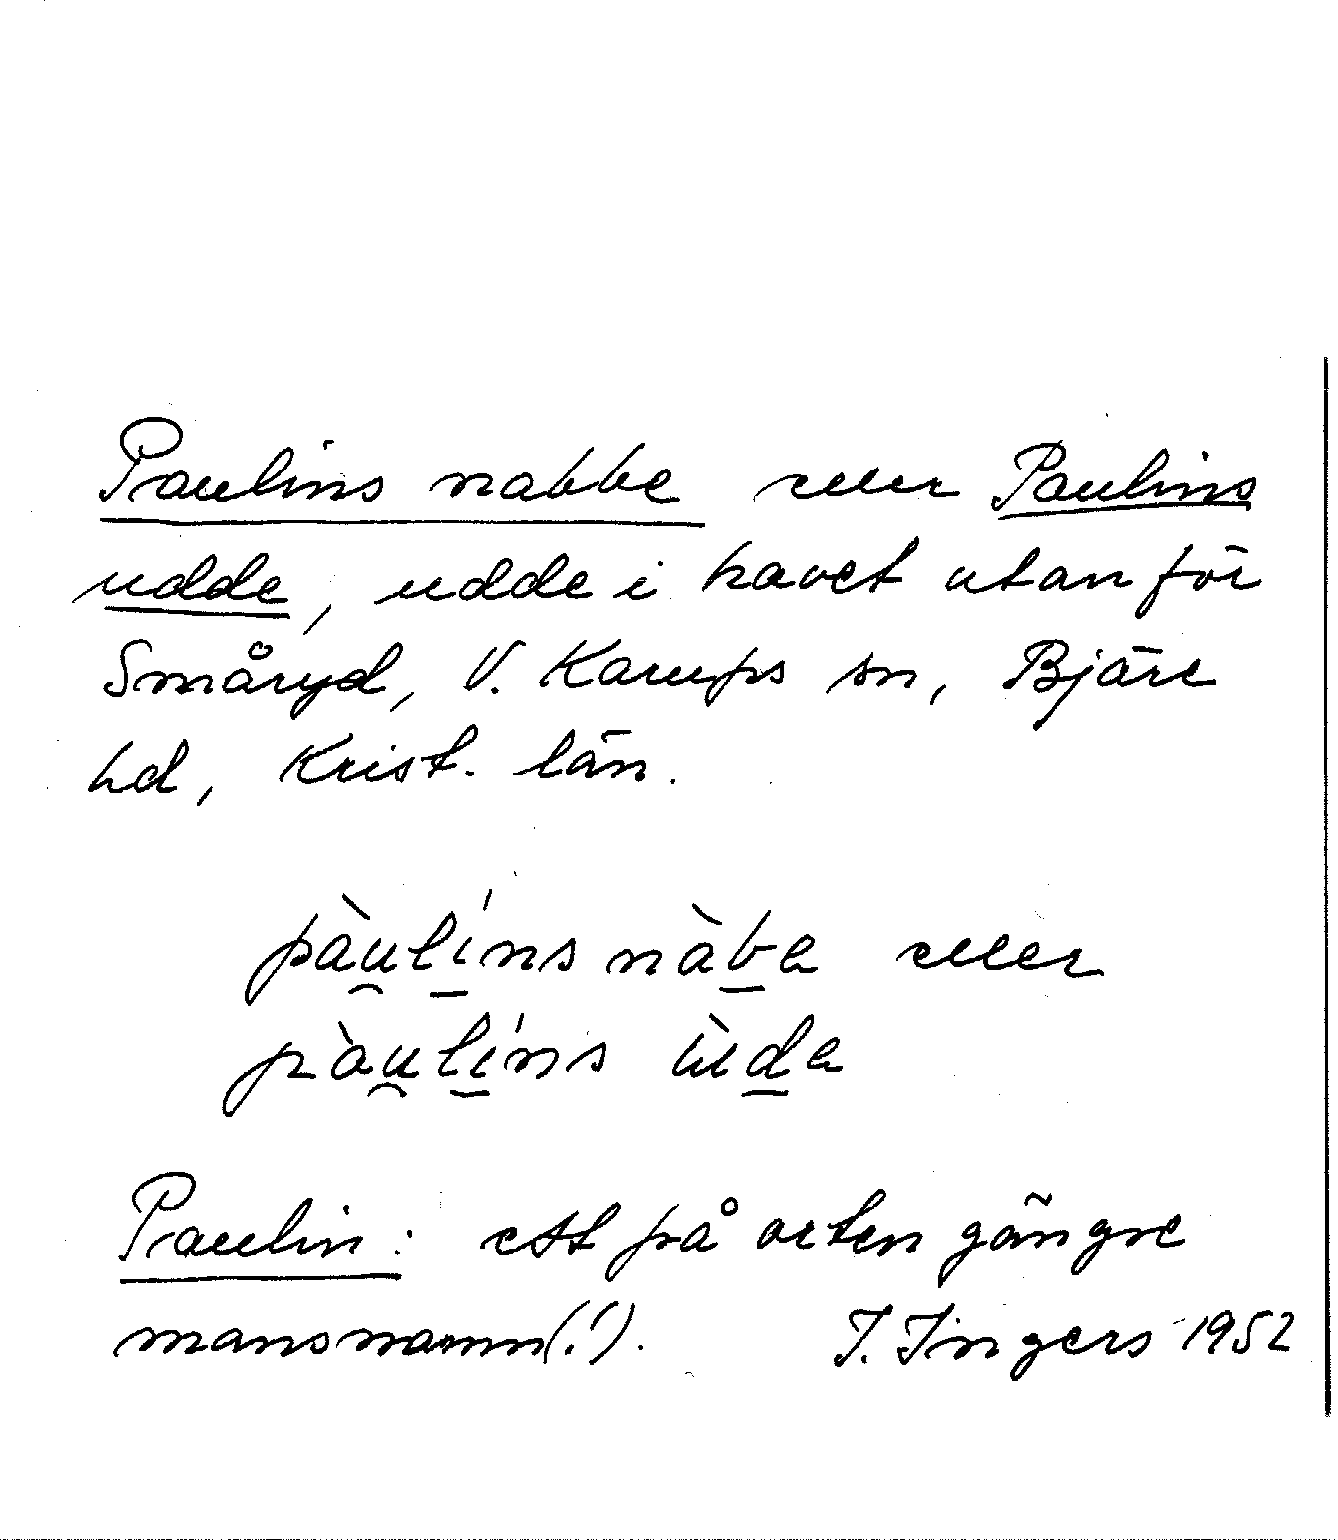 Paulins nabbe eller Paulins
udde, udde i havet utanför
Småryd, V. Karups sn, Bjäre
hd, Krist. län.
pàu̯lí̱ns nàḇe eller
pàu̯lí̱ns ùḏe
Paulin: ett på orten gängre
mansnamn(!). I. Ingers 1952